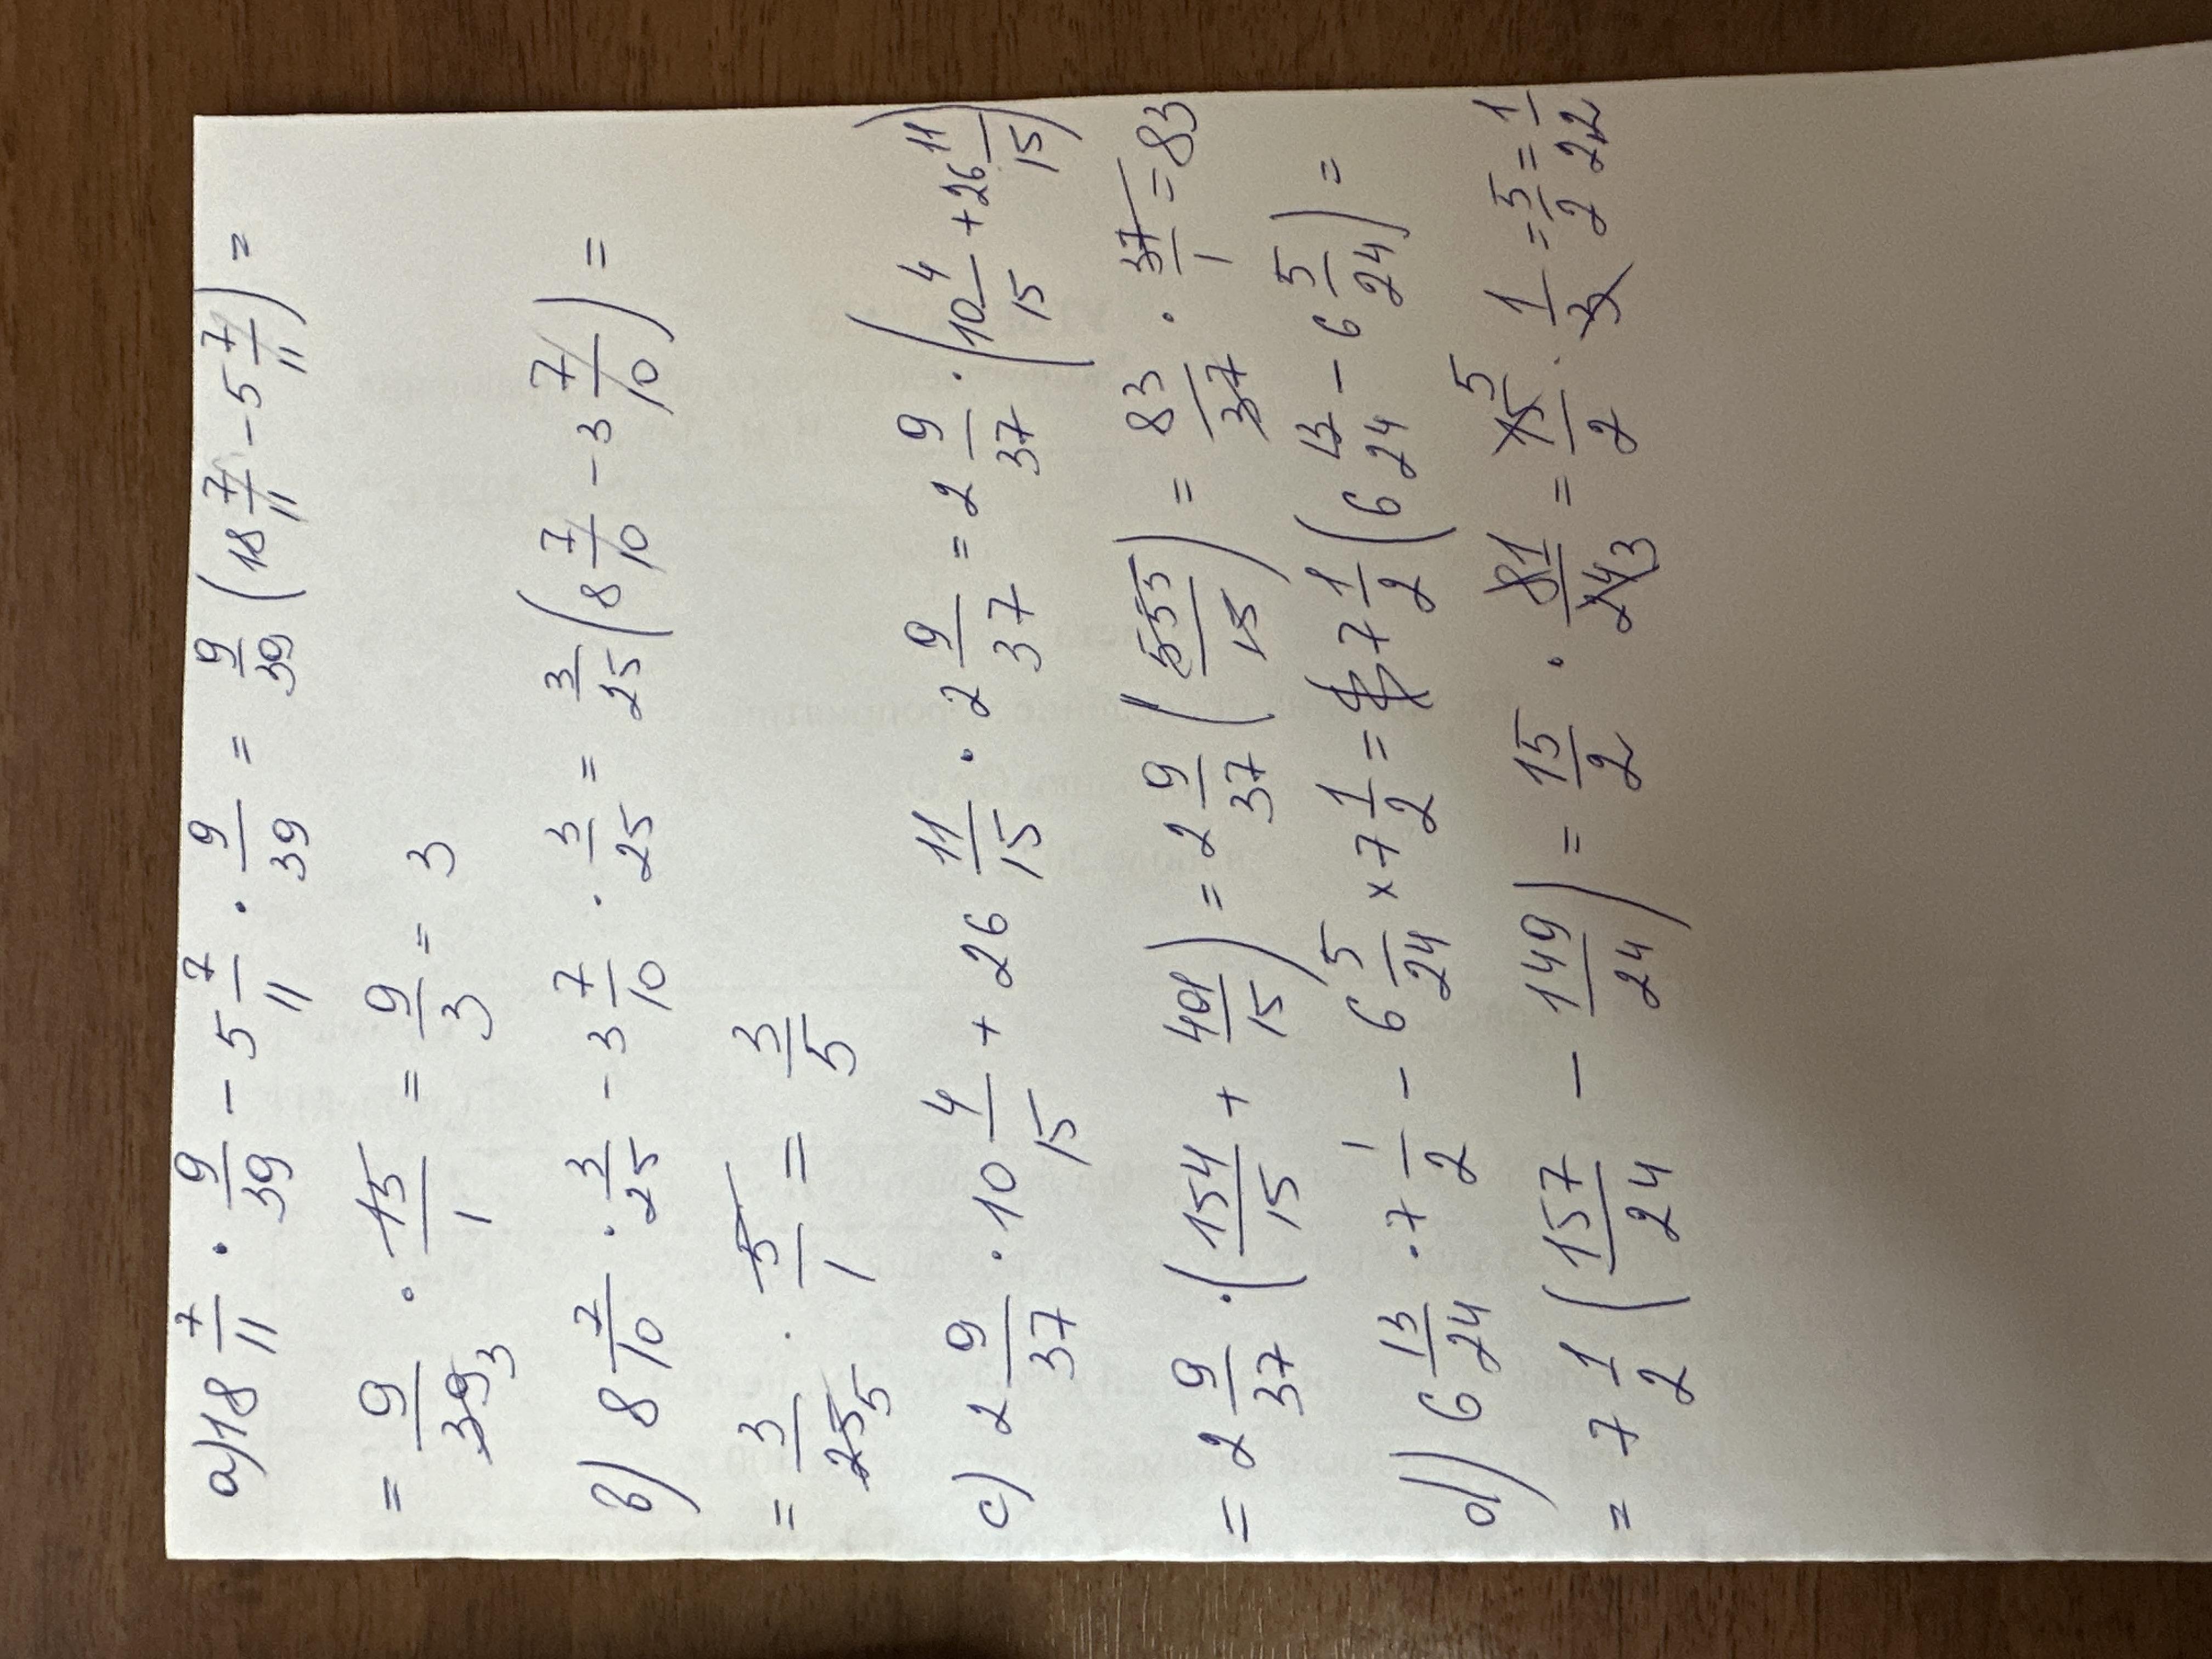 a) 18 7/11 · 9/39 - 5 7/11 · 9/39 = 9/39 (18 7/11 - 5 7/11) =
= 9/39 3 · 13/1 = 9/3 = 3
b) 8 7/10 · 3/25 - 3 7/10 · 3/25 = 3/25 (8 7/10 - 3 7/10) =
= 3/25 5 · 5/1 = 3/5
c) 2 9/37 · 10 4/15 + 26 11/15 · 2 9/37 = 2 9/37 · (10 4/15 + 26 11/15)
= 2 9/37 · (154/15 + 401/15) = 2 9/37 (555/15) = 83/37 · 37/1 = 83
d) 6 13/24 · 7 1/2 - 6 5/24 × 7 1/2 = 7 1/2 (6 13/24 - 6 5/24) =
= 7 1/2 (157/24 - 149/24) = 15/2 · 81/24 3 = 15 5/2 · 1/3 = 5/2 = 1/2 2